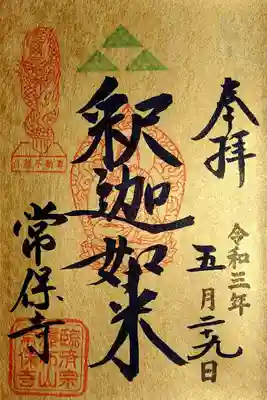 奉拝
令和三年
五月二十九日
釈迦如来
常保寺
臨済宗
常保寺